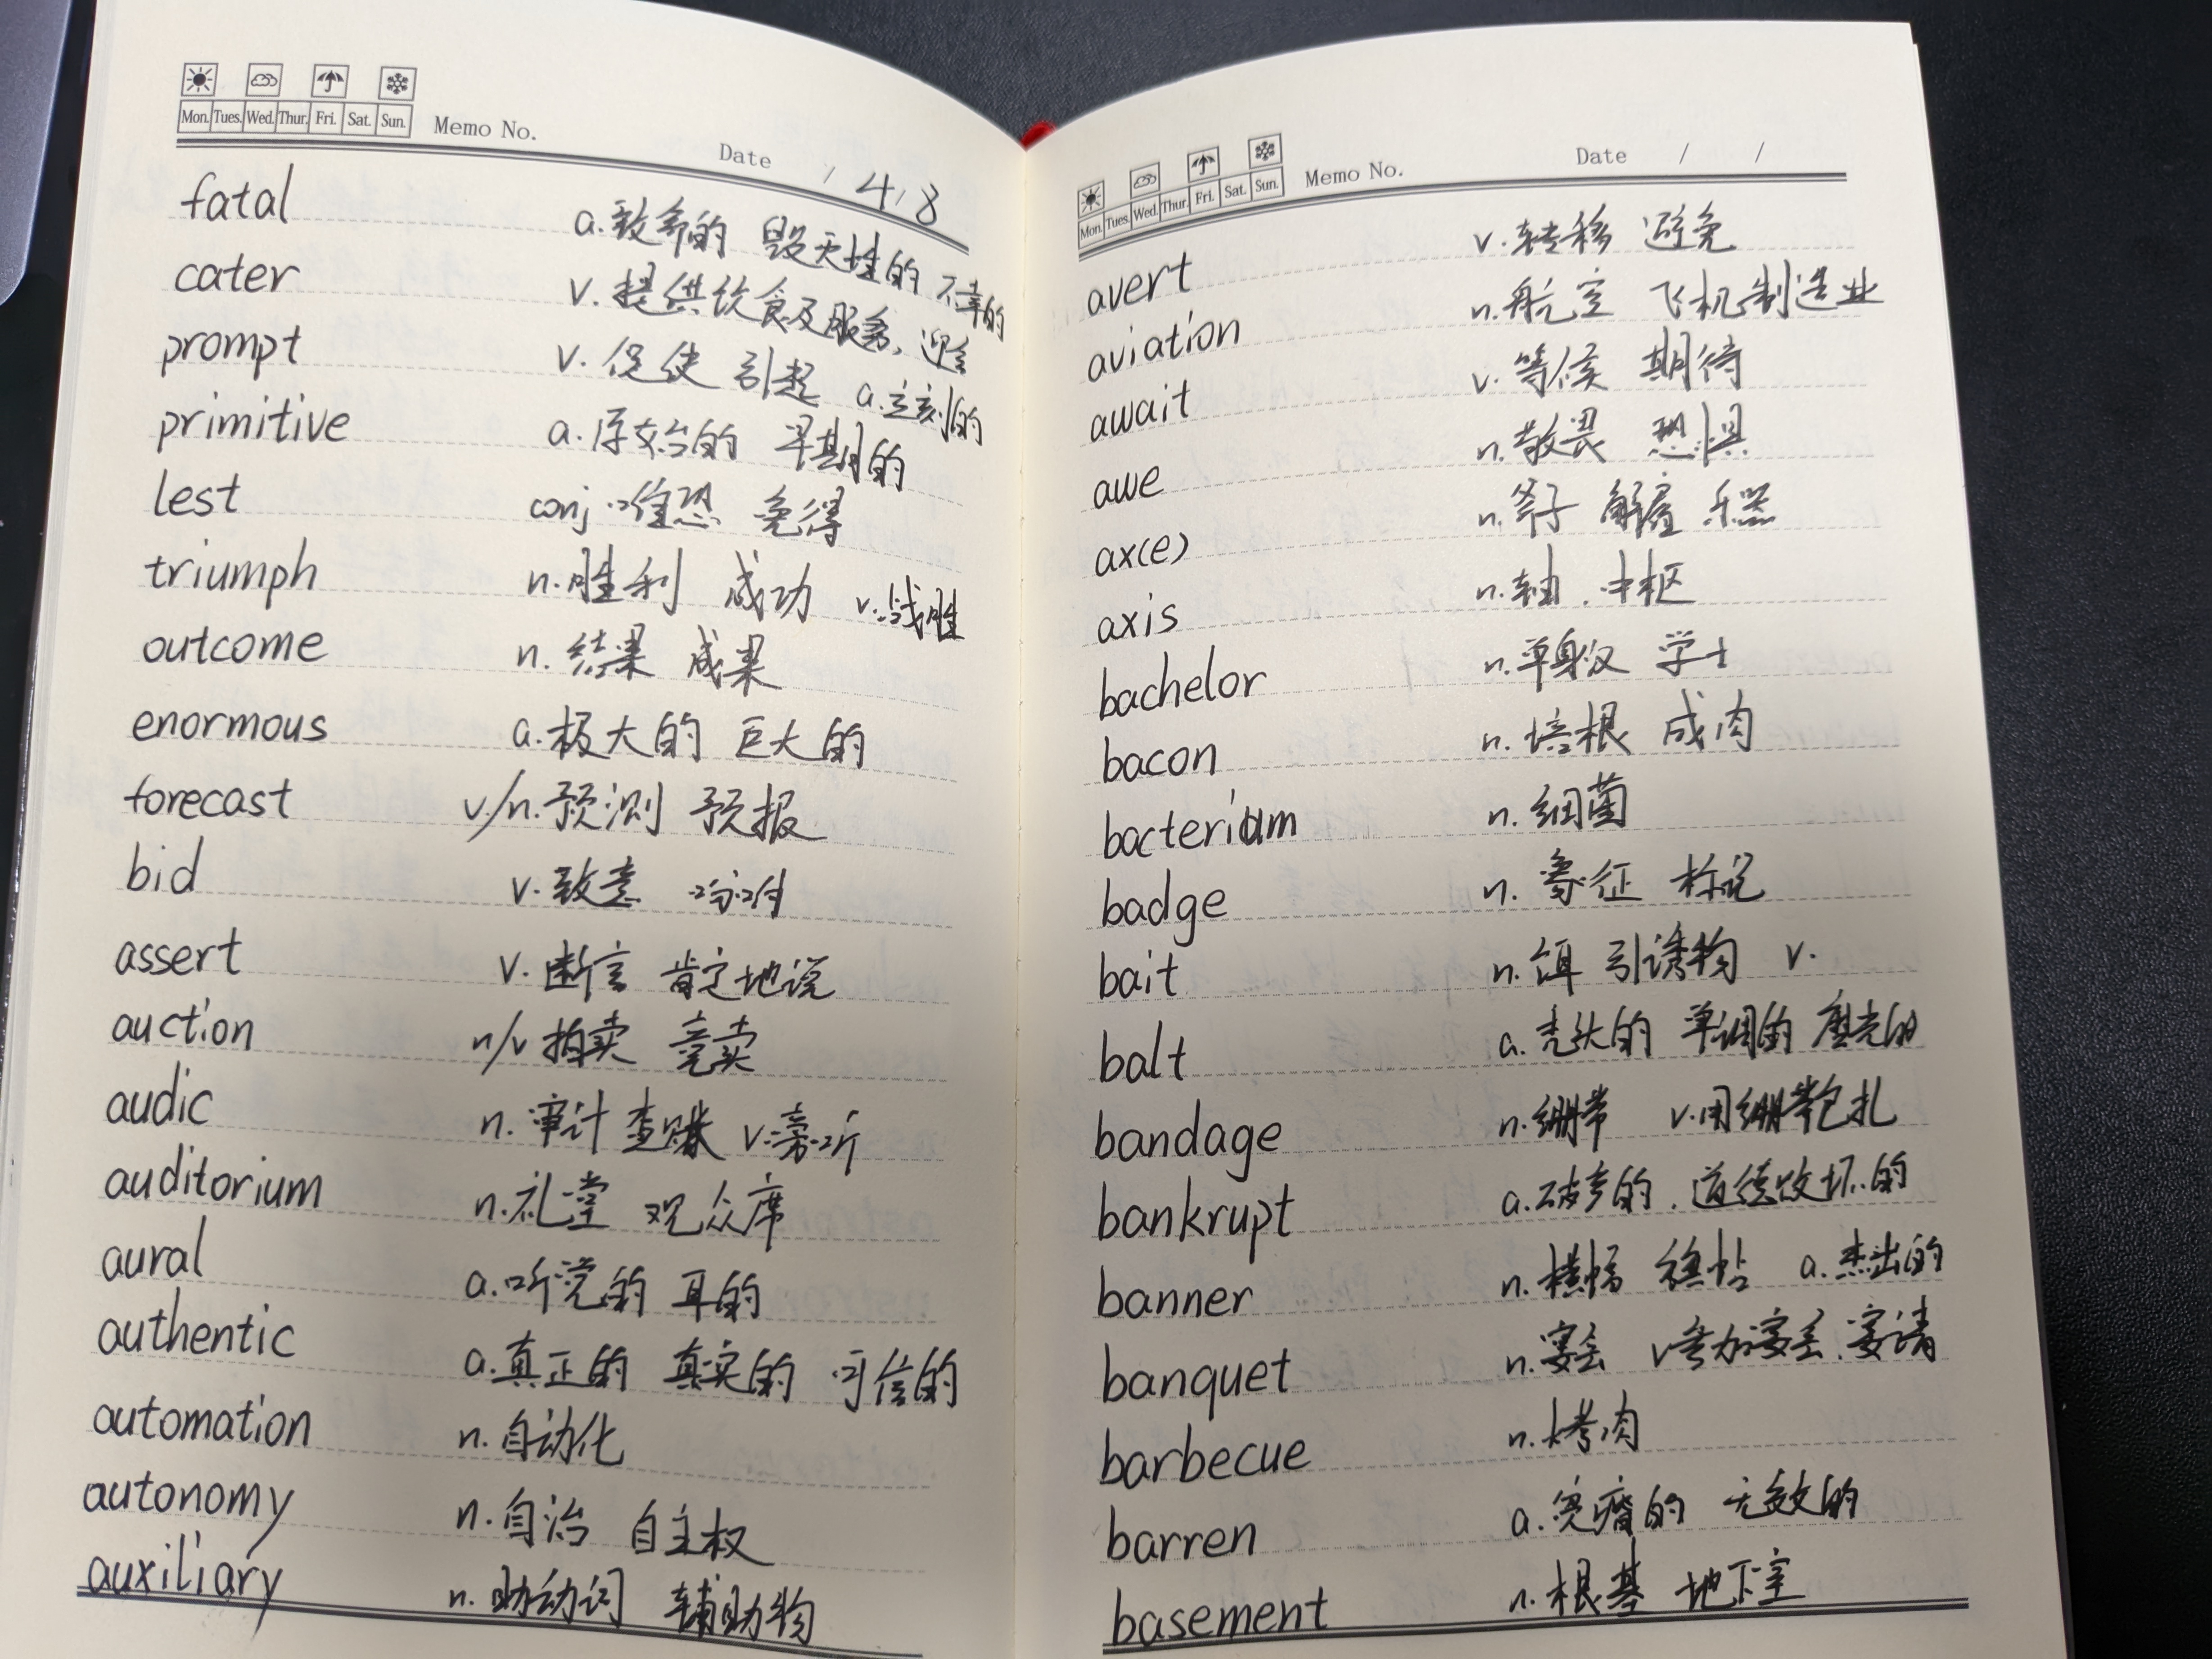 Mon. Tues. Wed. Thur. Fri. Sat. Sun. Memo No. Date / 4 / 8
fatal a.致命的 毁灭性的 不幸的
cater v.提供饮食及服务, 迎合
prompt v.促使 引起 a.立刻的
primitive a.原始的 早期的
lest conj.唯恐 免得
triumph n.胜利 成功 v.战胜
outcome n.结果 成果
enormous a.极大的 巨大的
forecast v/n.预测 预报
bid v.致意 吩咐
assert v.断言 肯定地说
auction n/v 拍卖 竞卖
audic n.审计 查账 v.旁听
auditorium n.礼堂 观众席
aural a.听觉的 耳的
authentic a.真正的 真实的 可信的
automation n.自动化
autonomy n.自治 自主权
auxiliary n.助动词 辅助物
Mon. Tues. Wed. Thur. Fri. Sat. Sun. Memo No. Date / /
avert v.转移 避免
aviation n.航空 飞机制造业
await v.等候 期待
awe n.敬畏 恐惧
ax(e) n.斧子 解雇 乐器
axis n.轴.中枢
bachelor n.单身汉 学士
bacon n.培根 咸肉
bacterium n.细菌
badge n.象征 标记
bait n.饵 引诱物 v.
balt a.秃头的 单调的 磨光的
bandage n.绷带 v.用绷带包扎
bankrupt a.破产的.道德败坏的
banner n.横幅 a.杰出的
banquet n.宴会 v参加宴会.宴请
barbecue n.烤肉
barren a.贫瘠的 无效的
basement n.根基 地下室